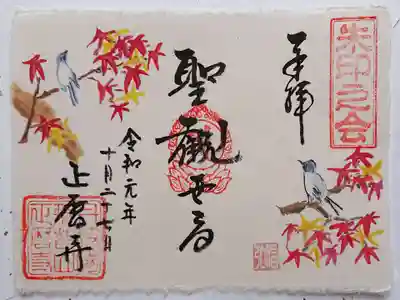 朱印之会
奉拝
聖観世音
令和元年
十月二十七日
正暦寺